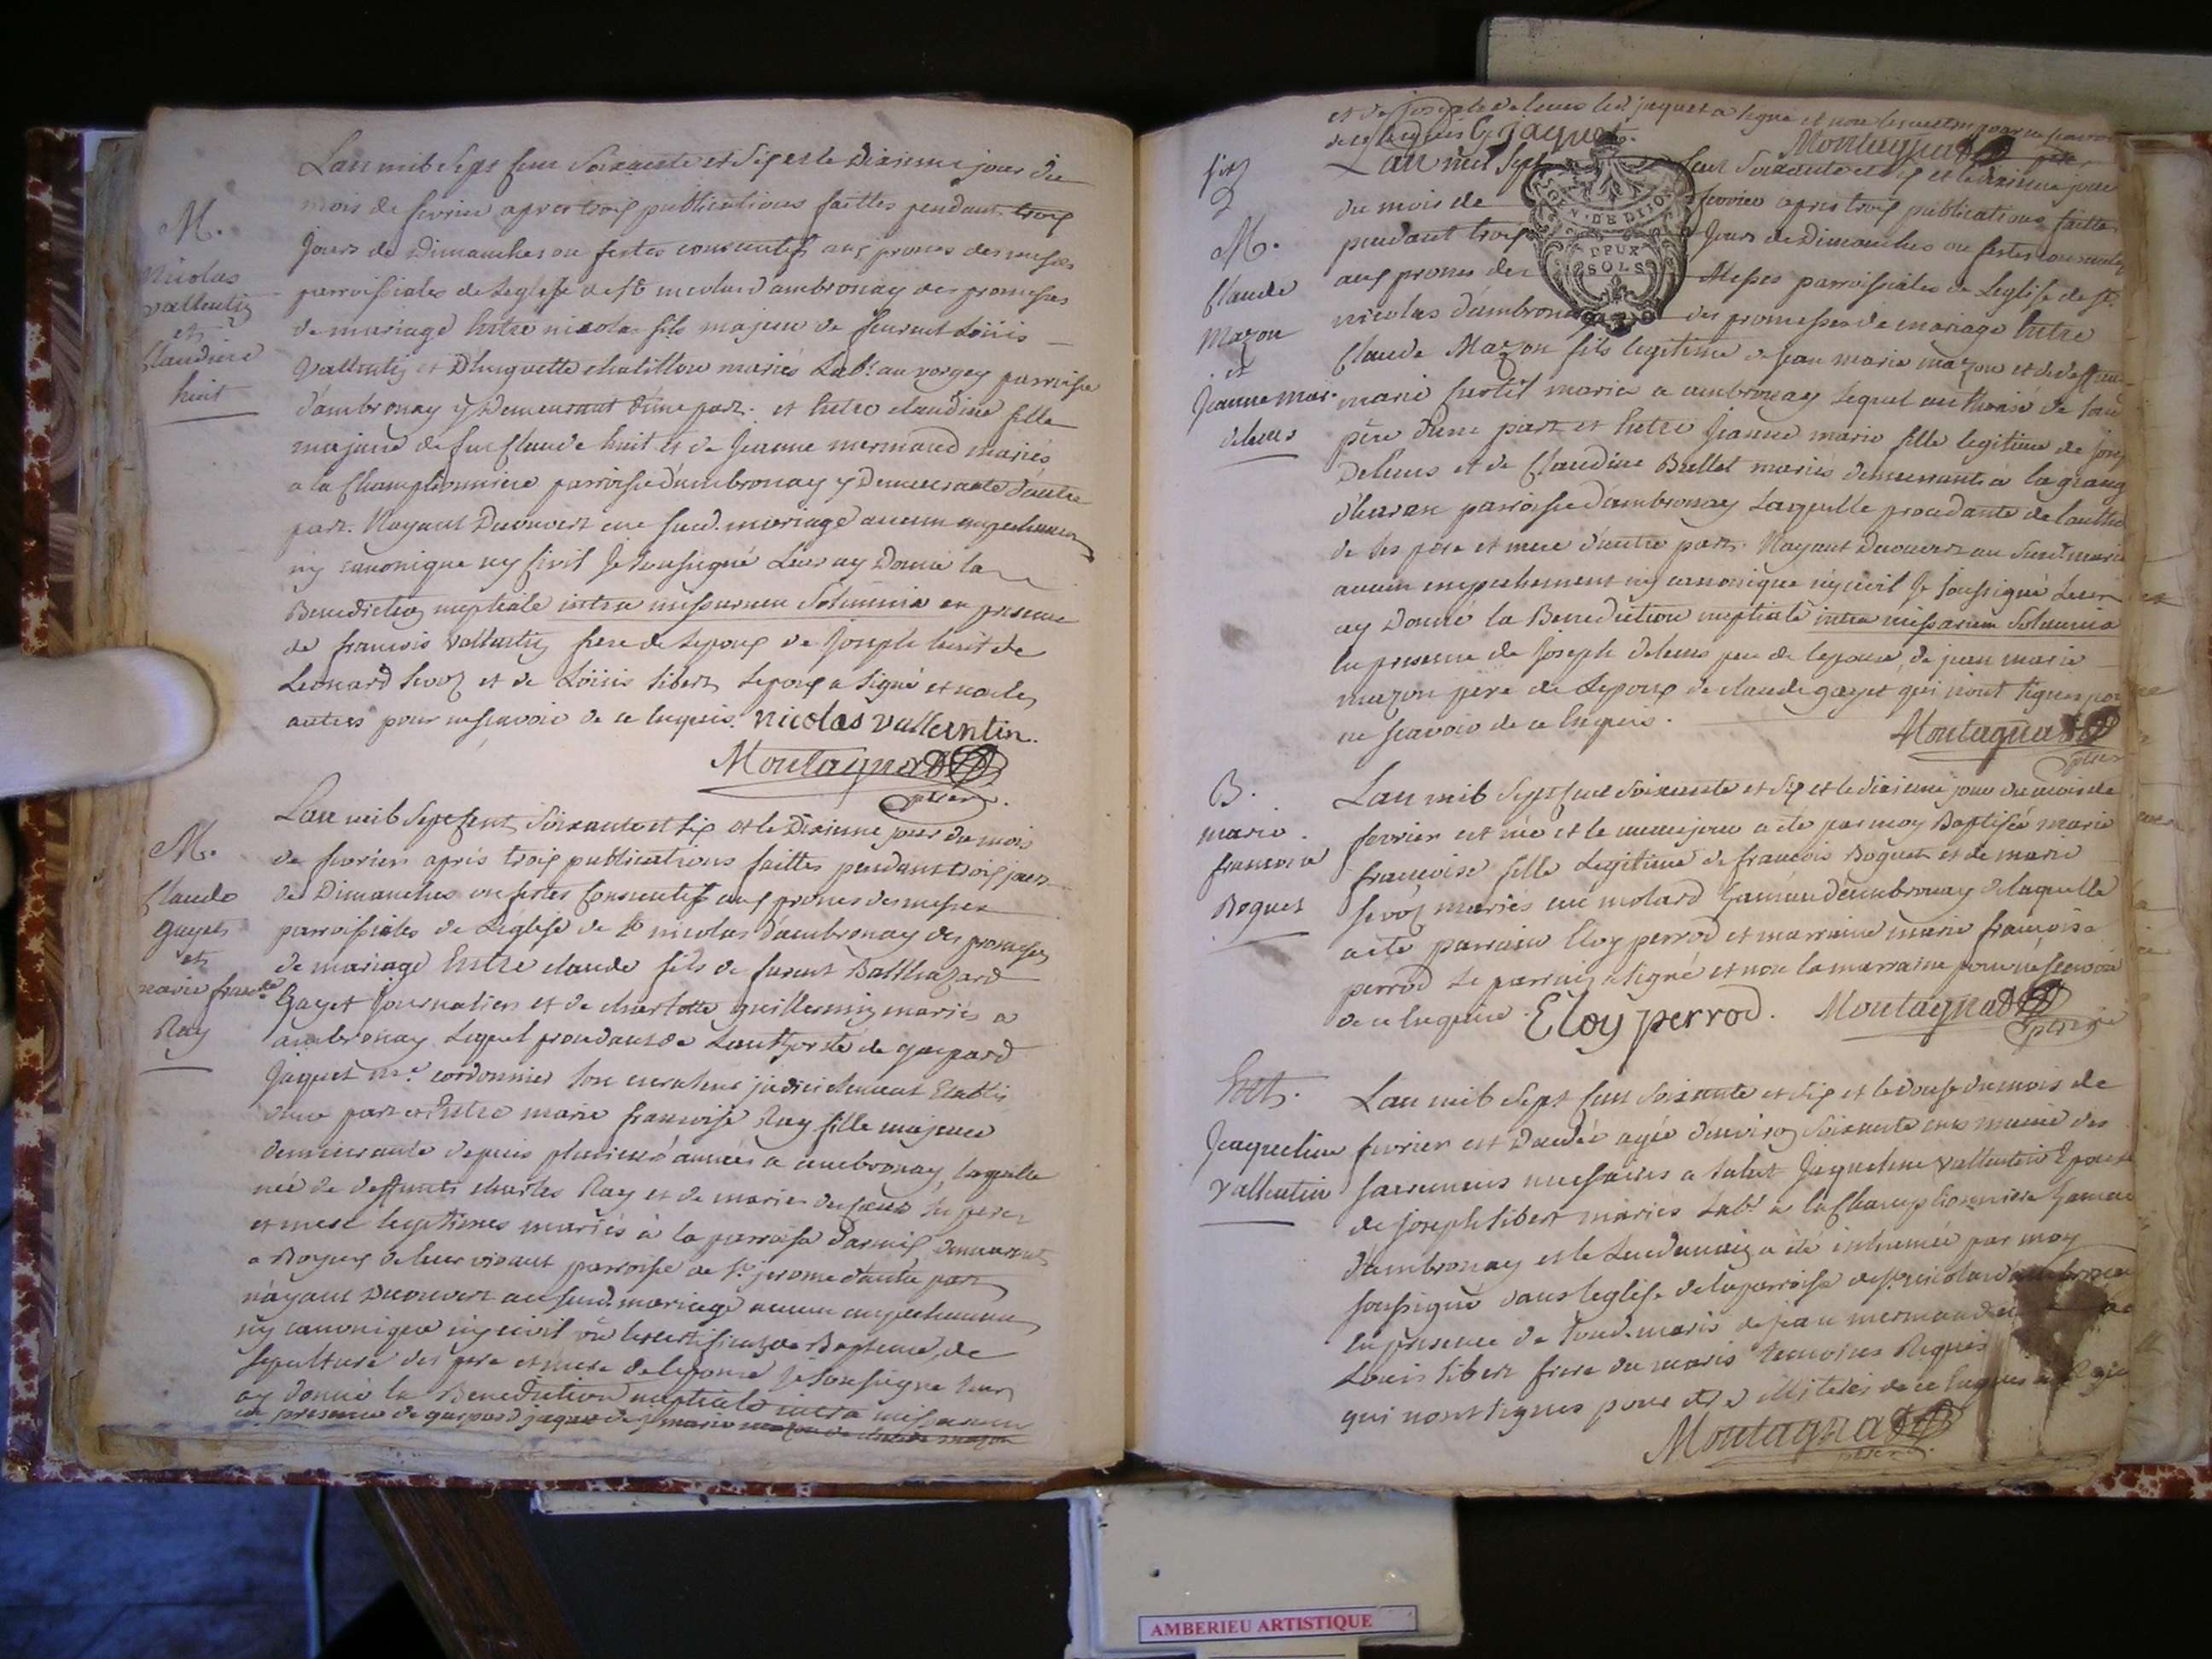 Lan mil Sept Cent Soixante et dix et le Dixieme jour du
M.
mois de fevrier apres trois publications faittes pendant trois
jours de Dimanches ou festes consecutifs aux prones des messes
Nicolas
vallentin
parroissiales de Leglise de St nicolas d'ambronay des promesses
et
de mariage Entre nicolas fils majeur de feurent Loüis
Claudine
huit
Vallentin et D'huguette chatillon mariés Labr. au vorgey parroisse
d'ambronay y Demeurant d'une part. et Entre claudine fille
majeure de feu Claude huit et de Jeanne mermand mariés
a la Championniere parroisse d'ambronay y Demeurante d'autre
part. Nayant Decouvert au susd. mariage aucun empechement
ny canonique ny Civil Je soussigné Leur ay Donné la
Benediction nuptiale intra missarum Solemnia en presence
de francois vallentin frere de Lepoux de Joseph huit de
Leonard et de Loüis Sibert Lepoux a signé et non les
autres pour ne scavoir de ce Enquis. Nicolas vallentin.
Montagnat
ptre
Lan mil Sept Cent Soixante et dix et le Dixieme jour du mois
M.
de fevrier aprés trois publications faittes pendant trois jours
Claude
de Dimanches ou festes Consecutifs aux prones des messes
gayet
parroissiales de Leglise de St nicolas d'ambronay des promesses
et
de mariage Entre claude fils de furent Balthazard
marie francse
Gayet Journalier et de charlotte guillermin mariés a
Ray
ambronay Lequel procedant de Lauthorité de gaspard
Jaquet me. cordonnier son curateur judiciellement Etablis
d'une part et Entre marie francoise Ray fille majeure
demeurante depuis plusieurs années a ambronay, laquelle
née de deffunts charles Ray et de marie ses pere
et mere legitimes mariés à la parroisse demeurants
a Boyeux de leur vivant parroisse de St. jerome d'autre part
n'ayant Decouvert au susd. mariage aucun empechement
ny canonique ny civil vû les certificats de Bapteme, de
sepulture des pere et mere de lepouse Je soussigné leur
ay donné la Benediction nuptiale intra missarum
en presence de gaspard jaquet de j marie mazon de claude mazon
et de joseph deleuns led. jaquet a signé et non les autres pour ne scavoir
de ce Enquis G. jaquet. Montagnat
ptre
Lan mil Sept Cent Soixante et dix et le dixieme jour
2
GEN. DE DIJON
DEUX
SOLS
du mois de fevrier apres trois publications faittes
M.
pendant trois Jours de Dimanches ou festes consecutifs
Claude
aux prones des Messes parroissiales de Leglise de St.
Mazon
nicolas d'ambronay des promesses de mariage Entre
et
Claude Mazon fils legitime de jean marie mazon et de deffunte
Jeanne mar.
marie mariés a ambronay Lequel authorisé de son
deleuns
père d'une part et Entre Jeanne marie fille legitime de
Deleuns et de Claudine Brullet mariés demeurants à la grange
parroisse d'ambronay Laquelle procedante de lauthorité
de ses pere et mere d'autre part. Nayant Decouvert au Susd. mariage
aucun empechement ny canonique ny civil Je soussigné Leur
ay Donné la Benediction nuptiale intra missarum Solemnia
En presence de Joseph deleuns pere de lepouse, de jean marie
mazon pere de Lepoux de claude gayet qui n'ont signés pour
ne scavoir de ce Enquis.
Montagnat
ptre
B.
Lan mil Sept Cent Soixante et dix et le dixieme jour du mois de
marie
fevrier est née et le meme jour a ete par moy Baptisée marie
francoise
francoise fille Legitime de francois Boguet et de marie
Boguet
mariés au molard hameau d'ambronay de laquelle
a eté parrain Eloy perrod et marraine marie francoise
perrod Le parrain a signé et non la marraine pour ne scavoir
de ce Enquise. Eloy perrod. Montagnat
ptre
Ent.
Lan mil Sept Cent Soixante et dix et le douze du mois de
Jacqueline
fevrier est Decedée agée d'environ Soixante ans munie des
vallentin
sacremens necessaires a salut Jaqueline vallentin Epouse
de joseph Sibert mariés Labr. a la Championniere hameau
d'ambronay et le Lendemain a été inhumée par moy
soussigné dans leglise de la parroisse de St. nicolas d'ambronay
En presence de Sond. maris de jean mermand et de
Louis Sibert frere du maris temoins Requis
qui n'ont signés pour etre illiterés de ce Enquis
Montagnat
ptre
AMBERIEU ARTISTIQUE